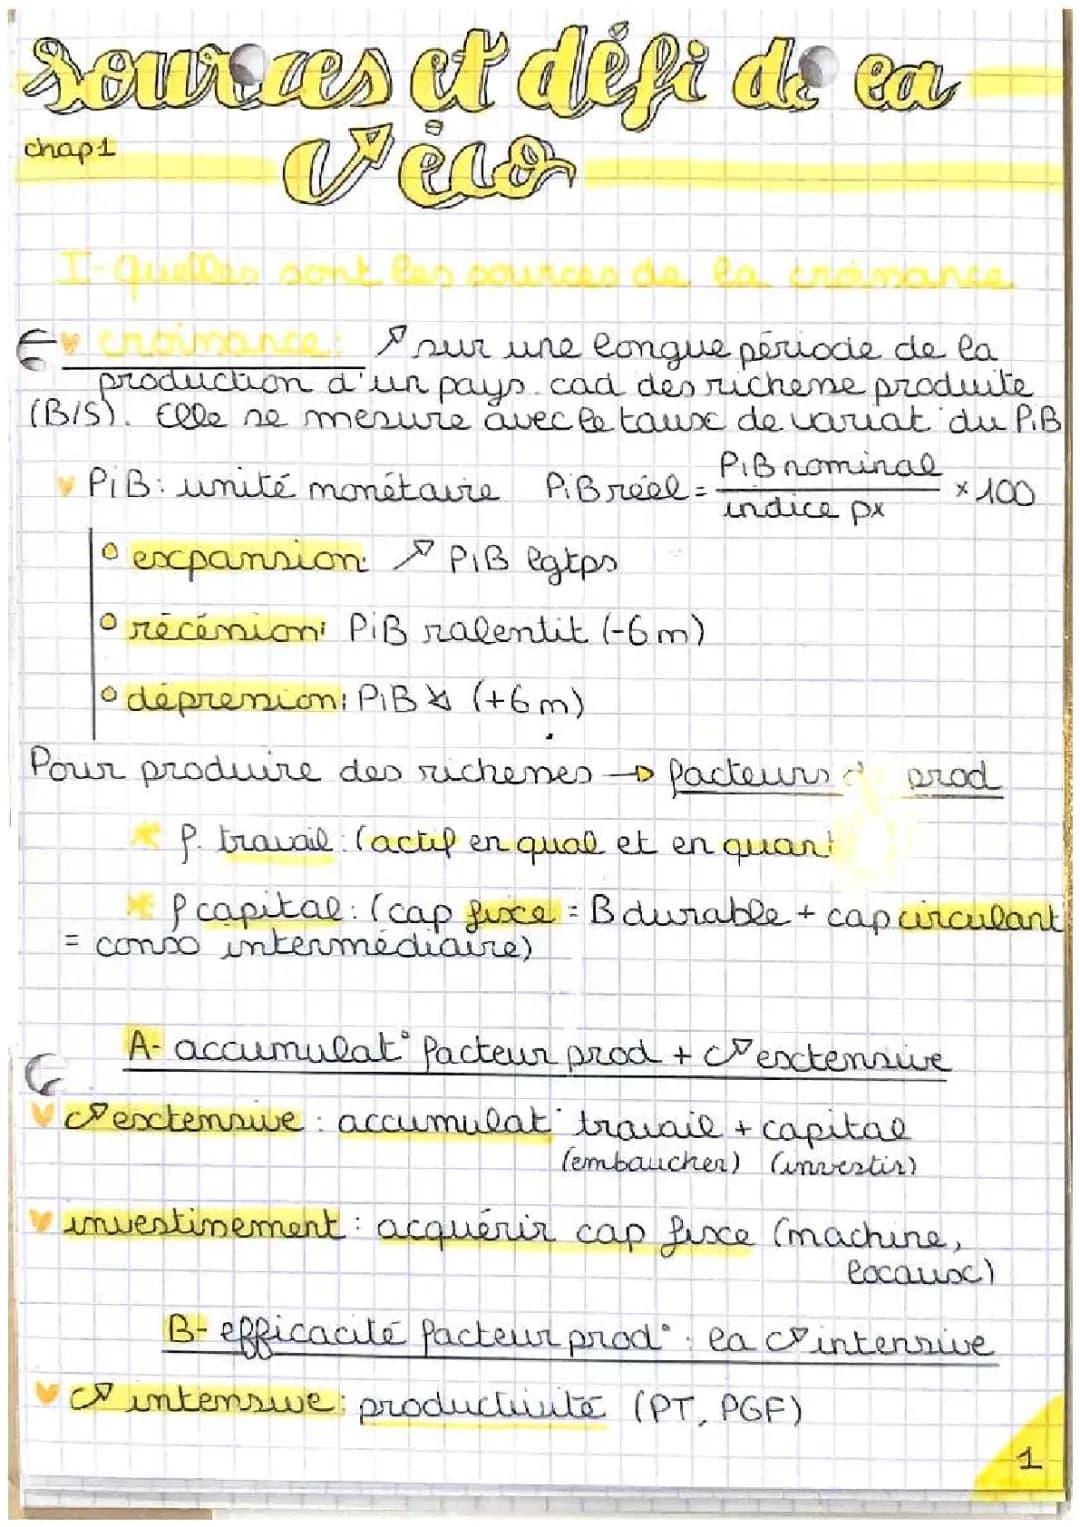 Sources et défi de la
chap1
c↗ éco
I- Quelles sont les sources de la croissance
croissance: ↗ sur une longue période de la
production d'un pays. cad des richesse produite
(B/S). Elle se mesure avec le taux de variat° du PiB
PiB: unité monétaire PiB réel = PiB nominal / indice px × 100
expansion: ↗ PiB lgtps
récéssion: PiB ralentit (-6m)
dépression: PiB ↘ (+6m)
Pour produire des richesses → facteurs d prod
f. travail: (actif en qual et en quant
f capital: (cap fixe = B durable + cap circulant
= conso intermédiaire)
A- accumulat° facteur prod + c↗ extensive
c↗ extensive: accumulat° travail + capital
(embaucher) (investir)
investissement: acquérir cap fixe (machine,
locaux)
B- efficacité facteur prod°: la c↗ intensive
c↗ intensive: productivité (PT, PGF)
1